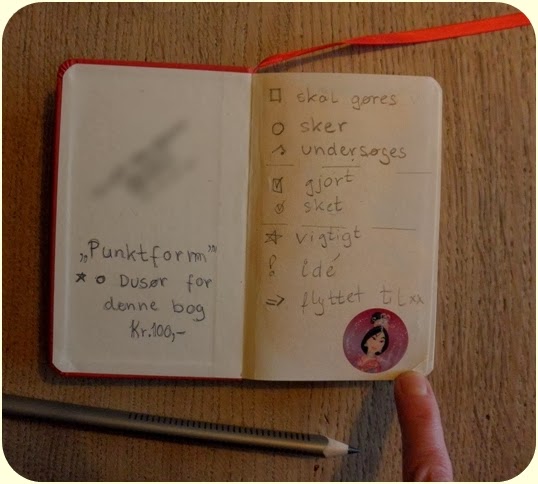 „Punktform”
☆ ○ Dusør for
denne bog
Kr.100,-
□ skal gøres
○ sker
undersøges
☑ gjort
sket
☆ vigtigt
! idé
⇒ flyttet til xx